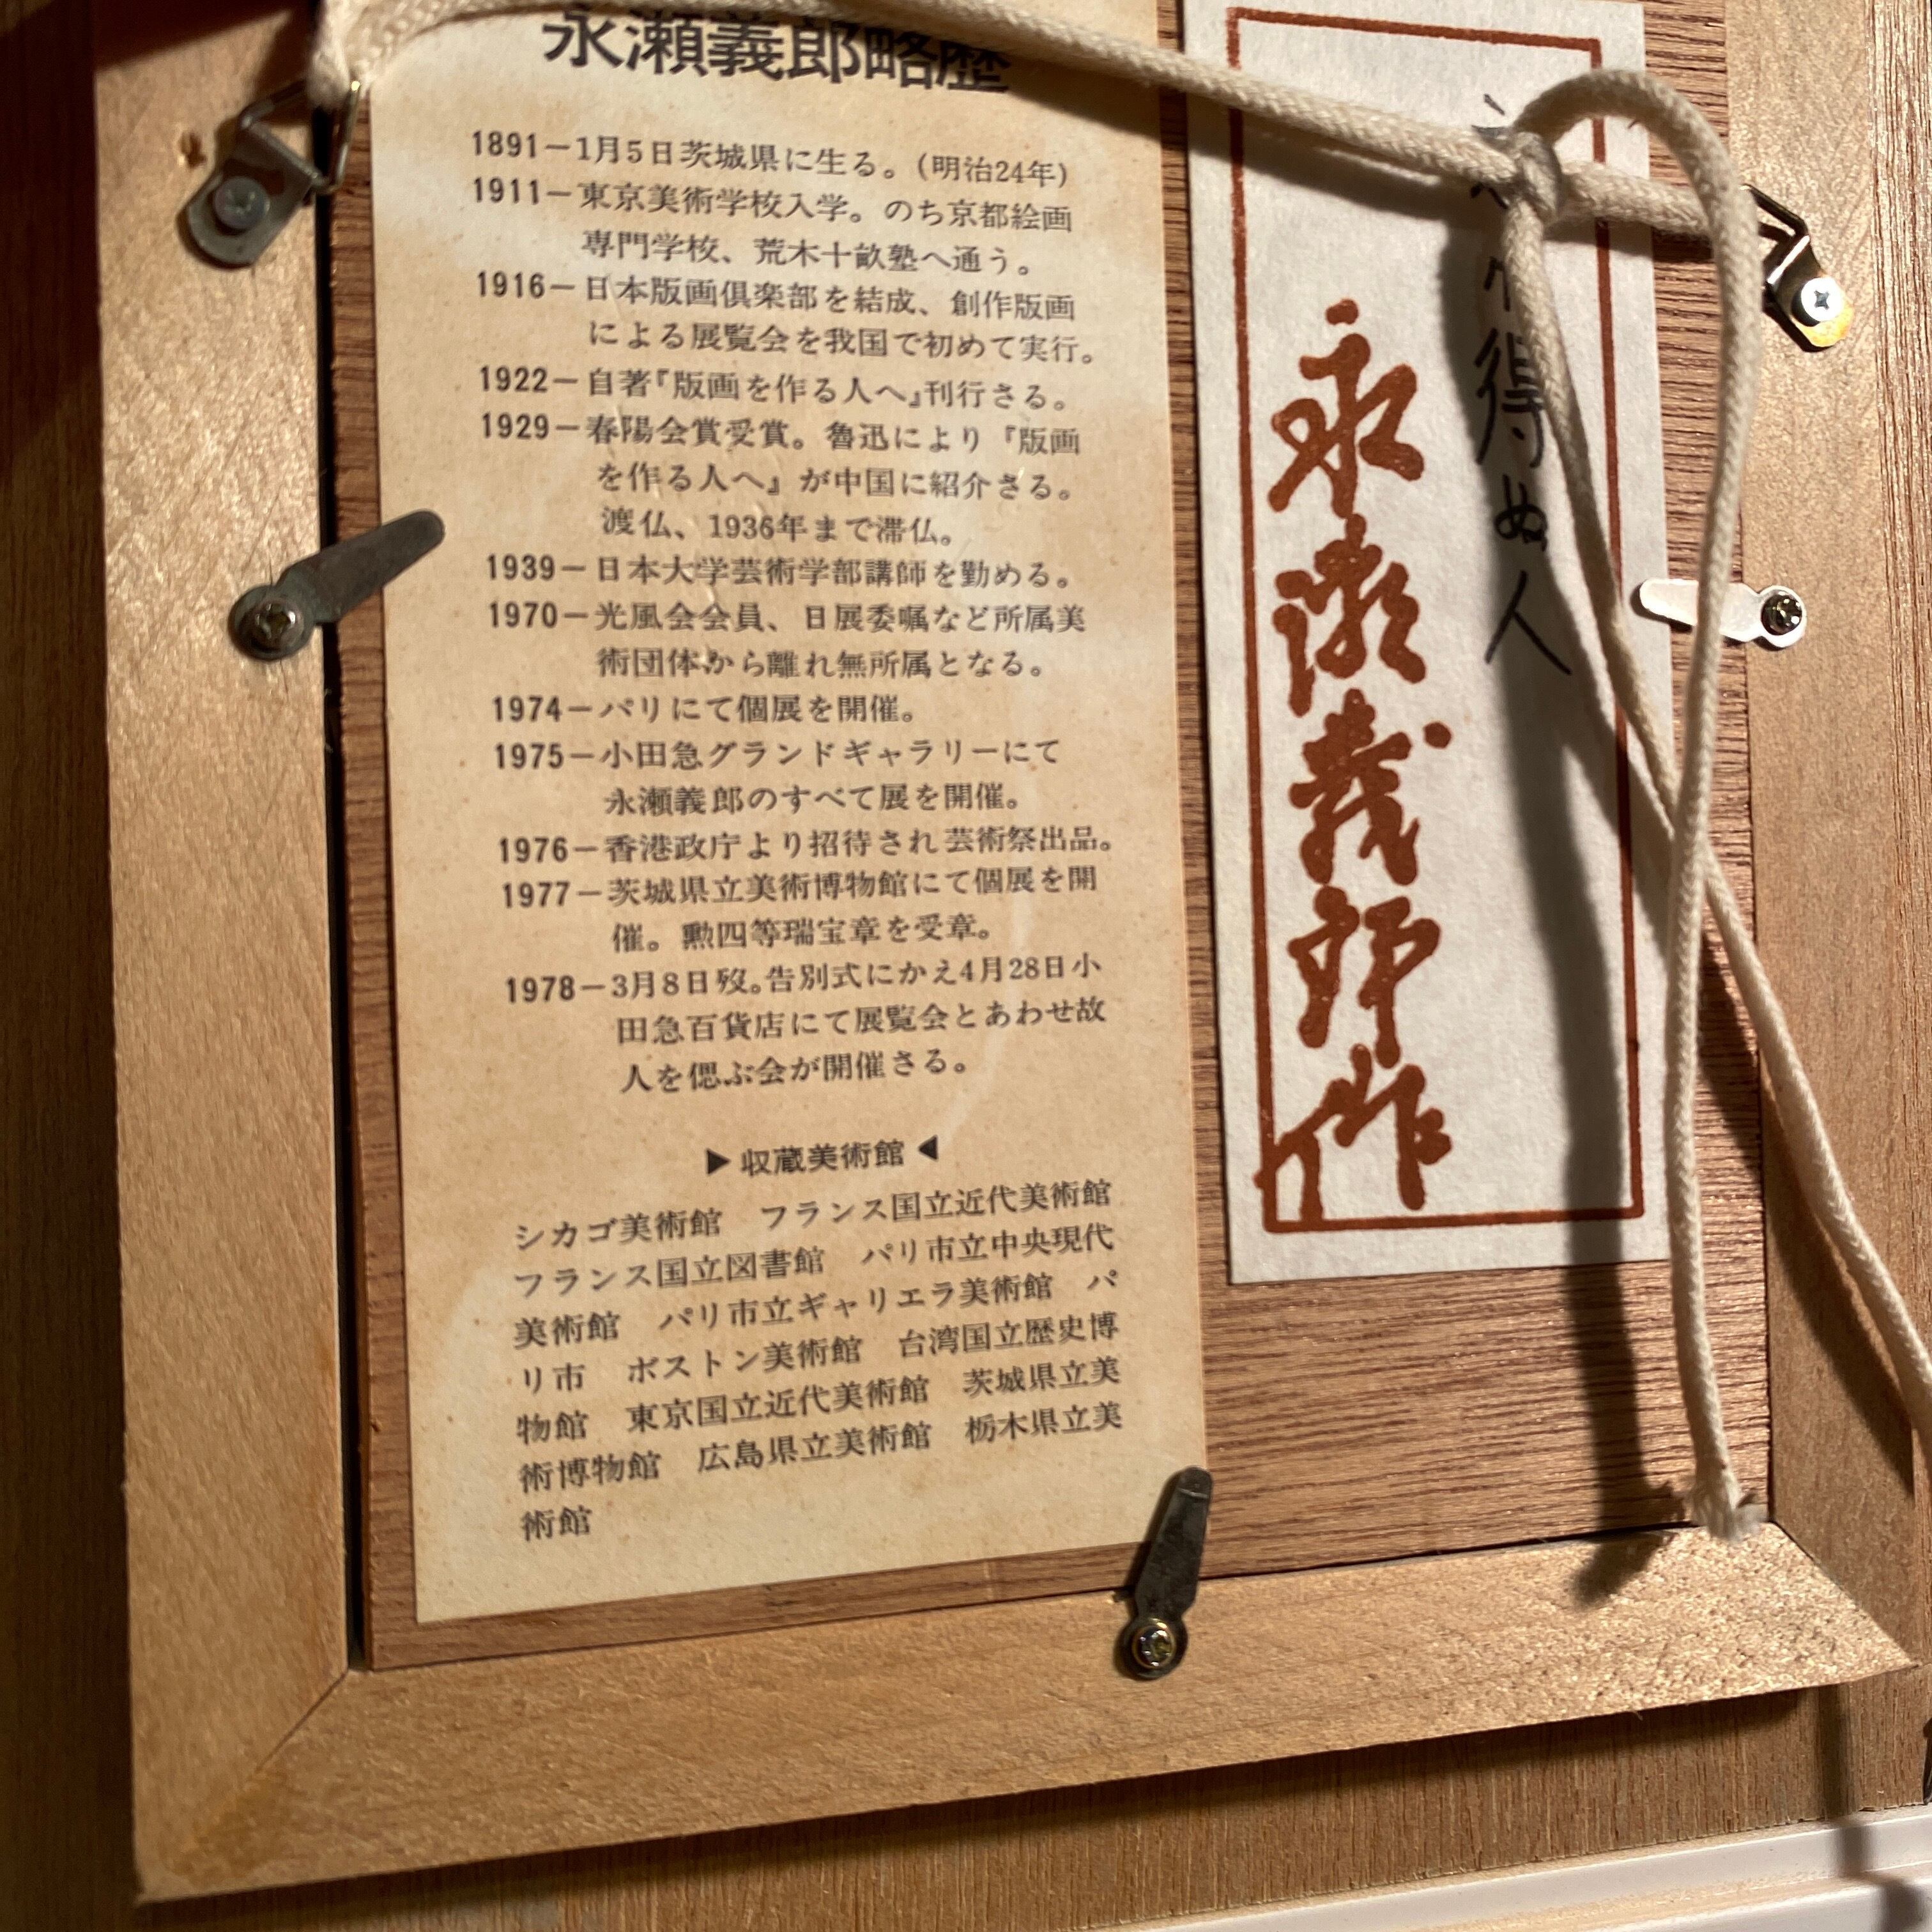 永瀬義郎略歴
1891－1月5日茨城県に生る。(明治24年)
1911－東京美術学校入学。のち京都絵画
専門学校、荒木十畝塾へ通う。
1916－日本版画倶楽部を結成、創作版画
による展覧会を我国で初めて実行。
1922－自著『版画を作る人へ』刊行さる。
1929－春陽会賞受賞。魯迅により『版画
を作る人へ』が中国に紹介さる。
渡仏、1936年まで滞仏。
1939－日本大学芸術学部講師を勤める。
1970－光風会会員、日展委嘱など所属美
術団体から離れ無所属となる。
1974－パリにて個展を開催。
1975－小田急グランドギャラリーにて
永瀬義郎のすべて展を開催。
1976－香港政庁より招待され芸術祭出品。
1977－茨城県立美術博物館にて個展を開
催。勲四等瑞宝章を受章。
1978－3月8日歿。告別式にかえ4月28日小
田急百貨店にて展覧会とあわせ故
人を偲ぶ会が開催さる。
▶収蔵美術館◀
シカゴ美術館　フランス国立近代美術館
フランス国立図書館　パリ市立中央現代
美術館　パリ市立ギャリエラ美術館　パ
リ市　ボストン美術館　台湾国立歴史博
物館　東京国立近代美術館　茨城県立美
術博物館　広島県立美術館　栃木県立美
術館
得ぬ人
永瀬義郎作